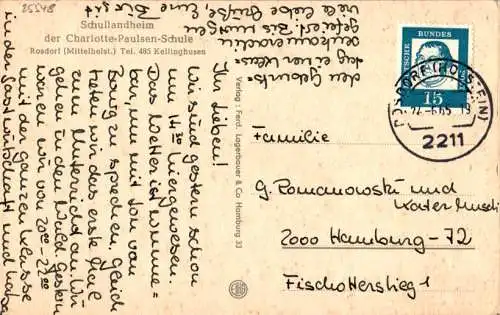 25548
Schullandheim
der Charlotte-Paulsen-Schule
Rosdorf (Mittelholst.) Tel. 485 Kellinghusen
Ihr Lieben!
wir sind gestern schon
um 14.30 hier gewesen.
Das Wetter ist wunne-
bar, um mit Ion von
Borg zu sprechen. Gleich
treten wir das erste Mal
zum Unterricht an. Wir
gehen in den Wald. Gestern
waren wir von 20.00 - 22.00
mit der ganzen Klasse
in der Gastwirtschaft und haben
den Geburts-
tag einer
gefeiert. Bis morgen
viele liebe Grüße, Eure
Verlag: Ferd. Lagerbauer & Co. Hamburg 33
DEUTSCHE BUNDES
15
ROSDORF (HOLSTEIN)
22.-6.65.-19
2211
Familie
G. Romanowski und
Kater Muschi
2000 Hamburg-72
Fischottersteg 1